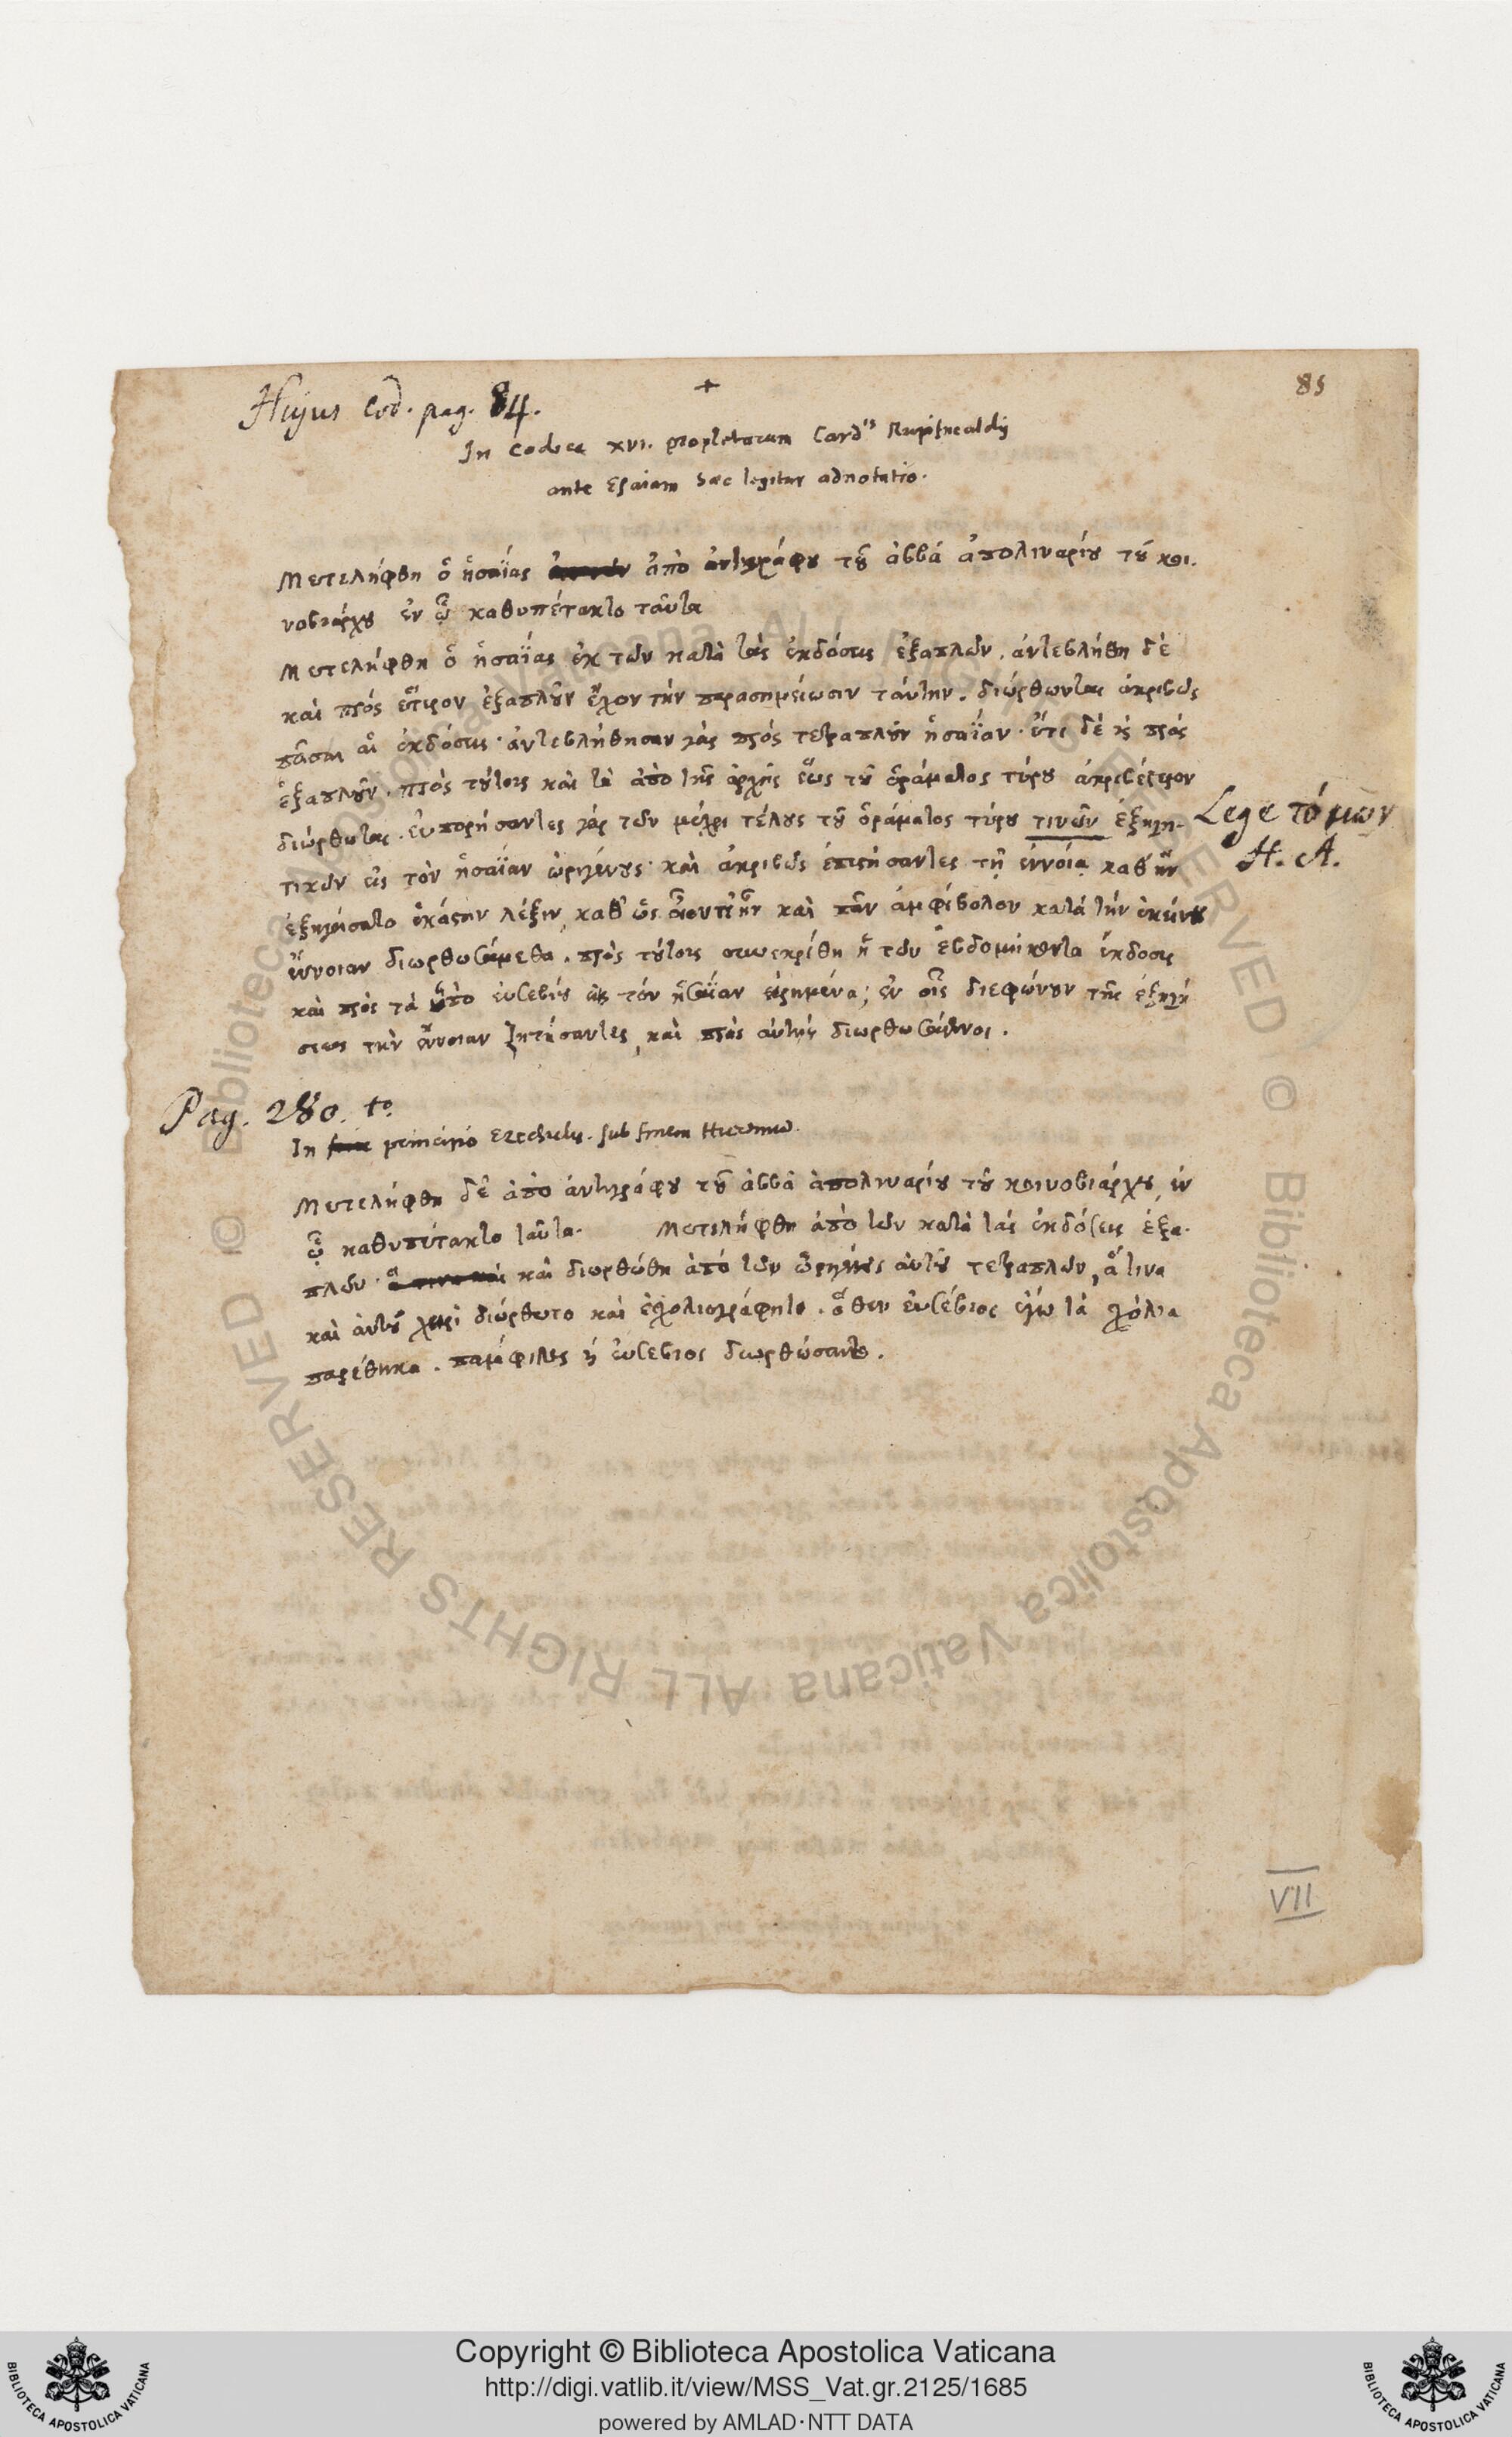 85
+
Hujus Cod. pag. 84.
In Codice XVI. prophetarum Card.is Rupifucaldij
ante Esaiam haec legitur adnotatio.
Μετελήφθη ὁ ἡσαΐας ἀπὸ ἀντιγράφου τοῦ ἀββᾶ ἀπολιναρίου τοῦ κοι-
νοβιάρχου ἐν ᾧ καθυπέτακτο ταῦτα
Μετελήφθη ὁ ἡσαΐας ἐκ τῶν κατὰ τὰς ἐκδόσεις ἑξαπλῶν. ἀντεβλήθη δὲ
καὶ πρὸς ἕτερον ἑξαπλοῦν ἔχον τὴν παρασημείωσιν ταύτην. διώρθωνται ἀκριβῶς
πᾶσαι αἱ ἐκδόσεις. ἀντεβλήθησαν γὰρ πρὸς τετραπλοῦν ἡσαΐαν. ἔτι δὲ κ̀ πρὸς
ἑξαπλοῦν. πρὸς τούτοις καὶ τὰ ἀπὸ τῆς ἀρχῆς ἕως τοῦ ὁράματος τύρου ἀκριβέστερον
διώρθωται. εὐπορήσαντες γὰρ τῶν μέχρι τέλους τοῦ ὁράματος τύρου τινῶν ἐξηγη-
Lege τόμων
H. A.
τικῶν εἰς τὸν ἡσαΐαν ὠριγένους. καὶ ἀκριβῶς ἐπιστήσαντες τῇ ἐννοίᾳ καθ' ἣν
ἐξηγήσατο ἑκάστην λέξιν, καθ' ὡς οἷόντε ἦν καὶ πᾶν ἀμφίβολον κατὰ τὴν ἐκείνου
ἔννοιαν διωρθωσάμεθα. πρὸς τούτοις συνεκρίθη ἡ τῶν ἑβδομήκοντα ἔκδοσις
καὶ πρὸς τὰ ὑπὸ εὐσεβίου εἰς τὸν ἡσαΐαν εἰρημένα; ἐν οἷς διεφώνουν τῆς ἐξηγή
σεως τὴν ἔννοιαν ζητήσαντες, καὶ πρὸς αὐτὴν διωρθωσάμενοι.
Pag. 280. to.
In principio Ezechielis. sub finem Hieremiae.
Μετελήφθη δὲ ἀπὸ ἀντιγράφου τοῦ ἀββᾶ ἀπολιναρίου τοῦ κοινοβιάρχου, ἐν
ᾧ καθυπέτακτο ταῦτα. Μετελήφθη ἀπὸ τῶν κατὰ τὰς ἐκδόσεις ἑξα-
πλῶν. καὶ διωρθώθη ἀπὸ τῶν ὠριγένους αὐτοῦ τετραπλῶν, ἅτινα
καὶ αὐτοῦ χειρὶ διώρθωτο καὶ ἐσχολιογράφητο. ὅθεν εὐσέβιος ἐγὼ τὰ σχόλια
παρέθηκα. πάμφιλος κ̀ εὐσέβιος διωρθώσαντο.
VII
Copyright © Biblioteca Apostolica Vaticana
http://digi.vatlib.it/view/MSS_Vat.gr.2125/1685
powered by AMLAD·NTT DATA